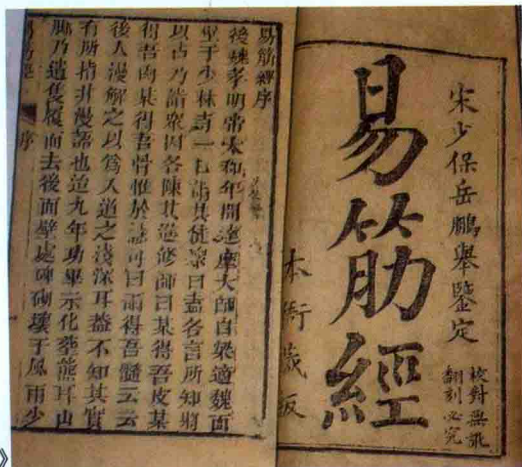 宋少保岳鵬舉鑒定
易筋經
本衙藏板
校對無訛
翻刻必究
易筋經序
後魏孝明帝太和年間達摩大師自梁適魏面
壁于少林寺一日謂其徒衆曰盍各言所知將
以占乃詣衆因各陳其造修師曰某得吾皮某
得吾肉某得吾骨惟於慧可曰爾得吾髓云云
後人漫解之以爲入道之淺深耳蓋不知其實
有所指非漫語也迨九年功畢示化葬熊耳山
脚乃遺隻履而去後面壁處碑砌壞于風雨少
易筋經
序
》